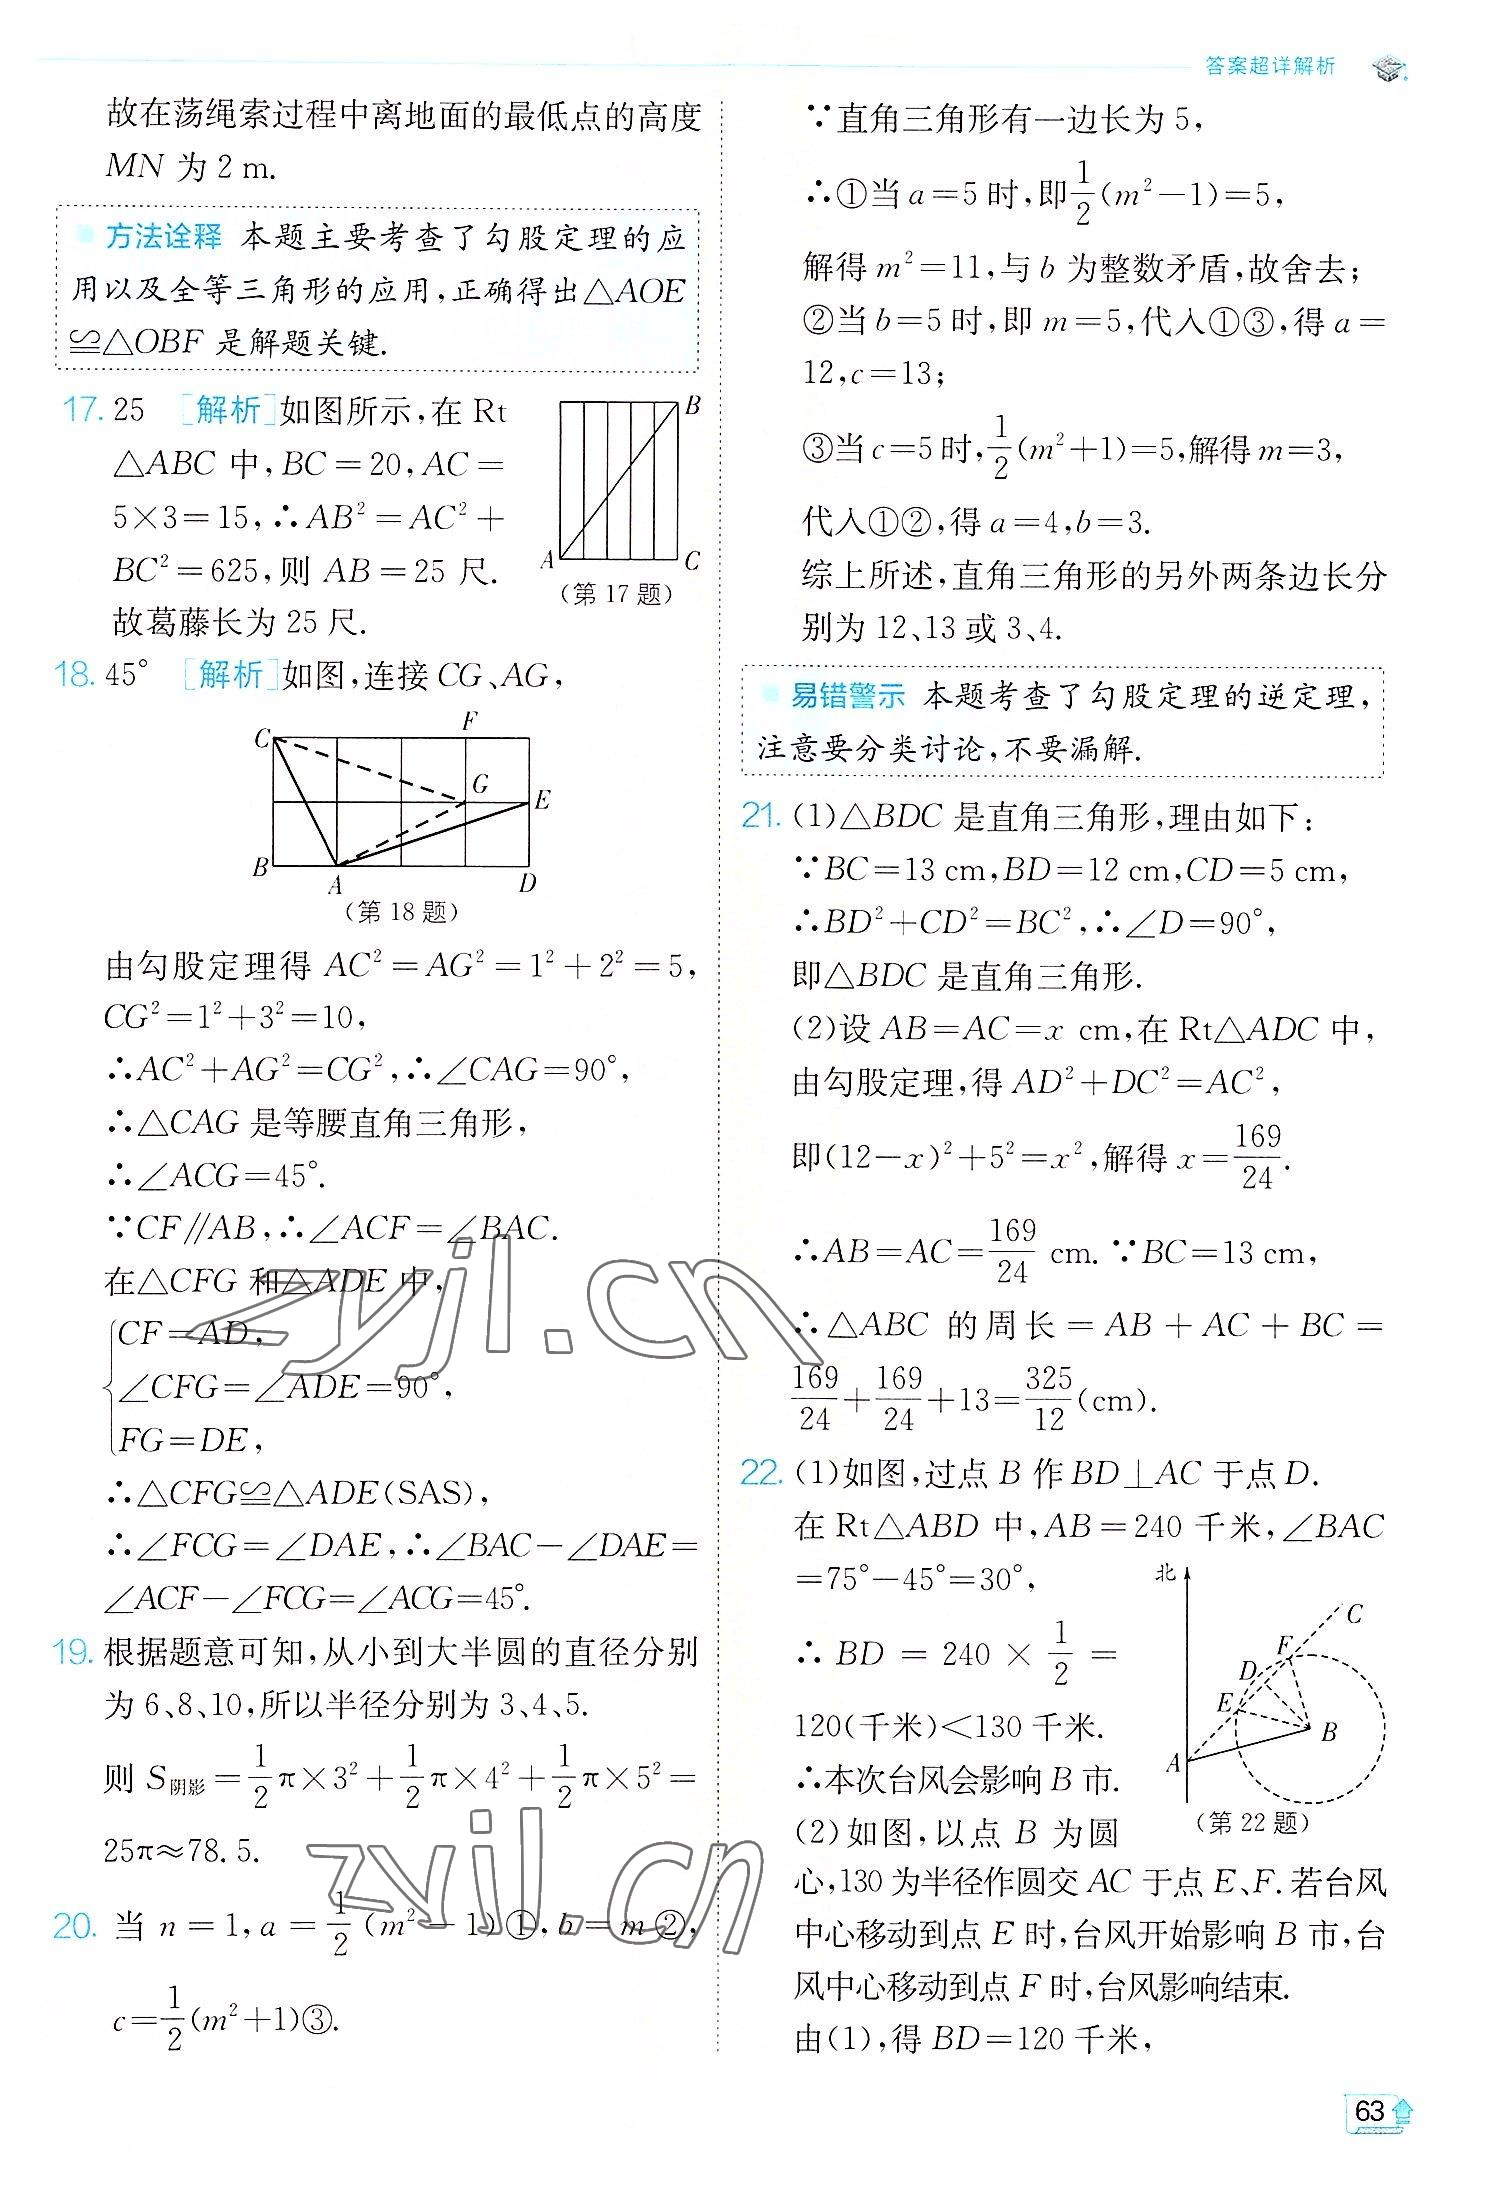 答案超详解析
故在荡绳索过程中离地面的最低点的高度
MN 为 2 m.
方法诠释 本题主要考查了勾股定理的应
用以及全等三角形的应用,正确得出△AOE
≌△OBF 是解题关键.
17. 25 [解析]如图所示,在 Rt
△ABC 中,BC=20,AC=
5×3=15,∴AB²=AC²+
BC²=625,则 AB=25 尺.
故葛藤长为 25 尺.
B
A
C
(第 17 题)
18. 45° [解析]如图,连接 CG、AG,
C
F
G
E
B
A
D
(第 18 题)
由勾股定理得 AC²=AG²=1²+2²=5,
CG²=1²+3²=10,
∴AC²+AG²=CG²,∴∠CAG=90°,
∴△CAG 是等腰直角三角形,
∴∠ACG=45°.
∵CF∥AB,∴∠ACF=∠BAC.
在△CFG 和△ADE 中,
{CF=AD,
∠CFG=∠ADE=90°,
FG=DE,
∴△CFG≌△ADE(SAS),
∴∠FCG=∠DAE,∴∠BAC-∠DAE=
∠ACF-∠FCG=∠ACG=45°.
19. 根据题意可知,从小到大半圆的直径分别
为 6、8、10,所以半径分别为 3、4、5.
则 S阴影=1/2π×3²+1/2π×4²+1/2π×5²=
25π≈78.5.
20. 当 n=1,a=1/2(m²-1)①,b=m②,
c=1/2(m²+1)③.
∵直角三角形有一边长为 5,
∴①当 a=5 时,即1/2(m²-1)=5,
解得 m²=11,与 b 为整数矛盾,故舍去;
②当 b=5 时,即 m=5,代入①③,得 a=
12,c=13;
③当 c=5 时,1/2(m²+1)=5,解得 m=3,
代入①②,得 a=4,b=3.
综上所述,直角三角形的另外两条边长分
别为 12、13 或 3、4.
易错警示 本题考查了勾股定理的逆定理,
注意要分类讨论,不要漏解.
21. (1)△BDC 是直角三角形,理由如下:
∵BC=13 cm,BD=12 cm,CD=5 cm,
∴BD²+CD²=BC²,∴∠D=90°,
即△BDC 是直角三角形.
(2)设 AB=AC=x cm,在 Rt△ADC 中,
由勾股定理,得 AD²+DC²=AC²,
即(12-x)²+5²=x²,解得 x=169/24.
∴AB=AC=169/24 cm.∵BC=13 cm,
∴△ABC 的周长=AB+AC+BC=
169/24+169/24+13=325/12(cm).
22. (1)如图,过点 B 作 BD⊥AC 于点 D.
在 Rt△ABD 中,AB=240 千米,∠BAC
=75°-45°=30°,
∴BD=240×1/2=
120(千米)<130 千米.
∴本次台风会影响 B 市.
(2)如图,以点 B 为圆
北
C
F
D
E
B
A
(第 22 题)
心,130 为半径作圆交 AC 于点 E、F.若台风
中心移动到点 E 时,台风开始影响 B 市,台
风中心移动到点 F 时,台风影响结束.
由(1),得 BD=120 千米,
zyjl.cn
zyjl.cn
63